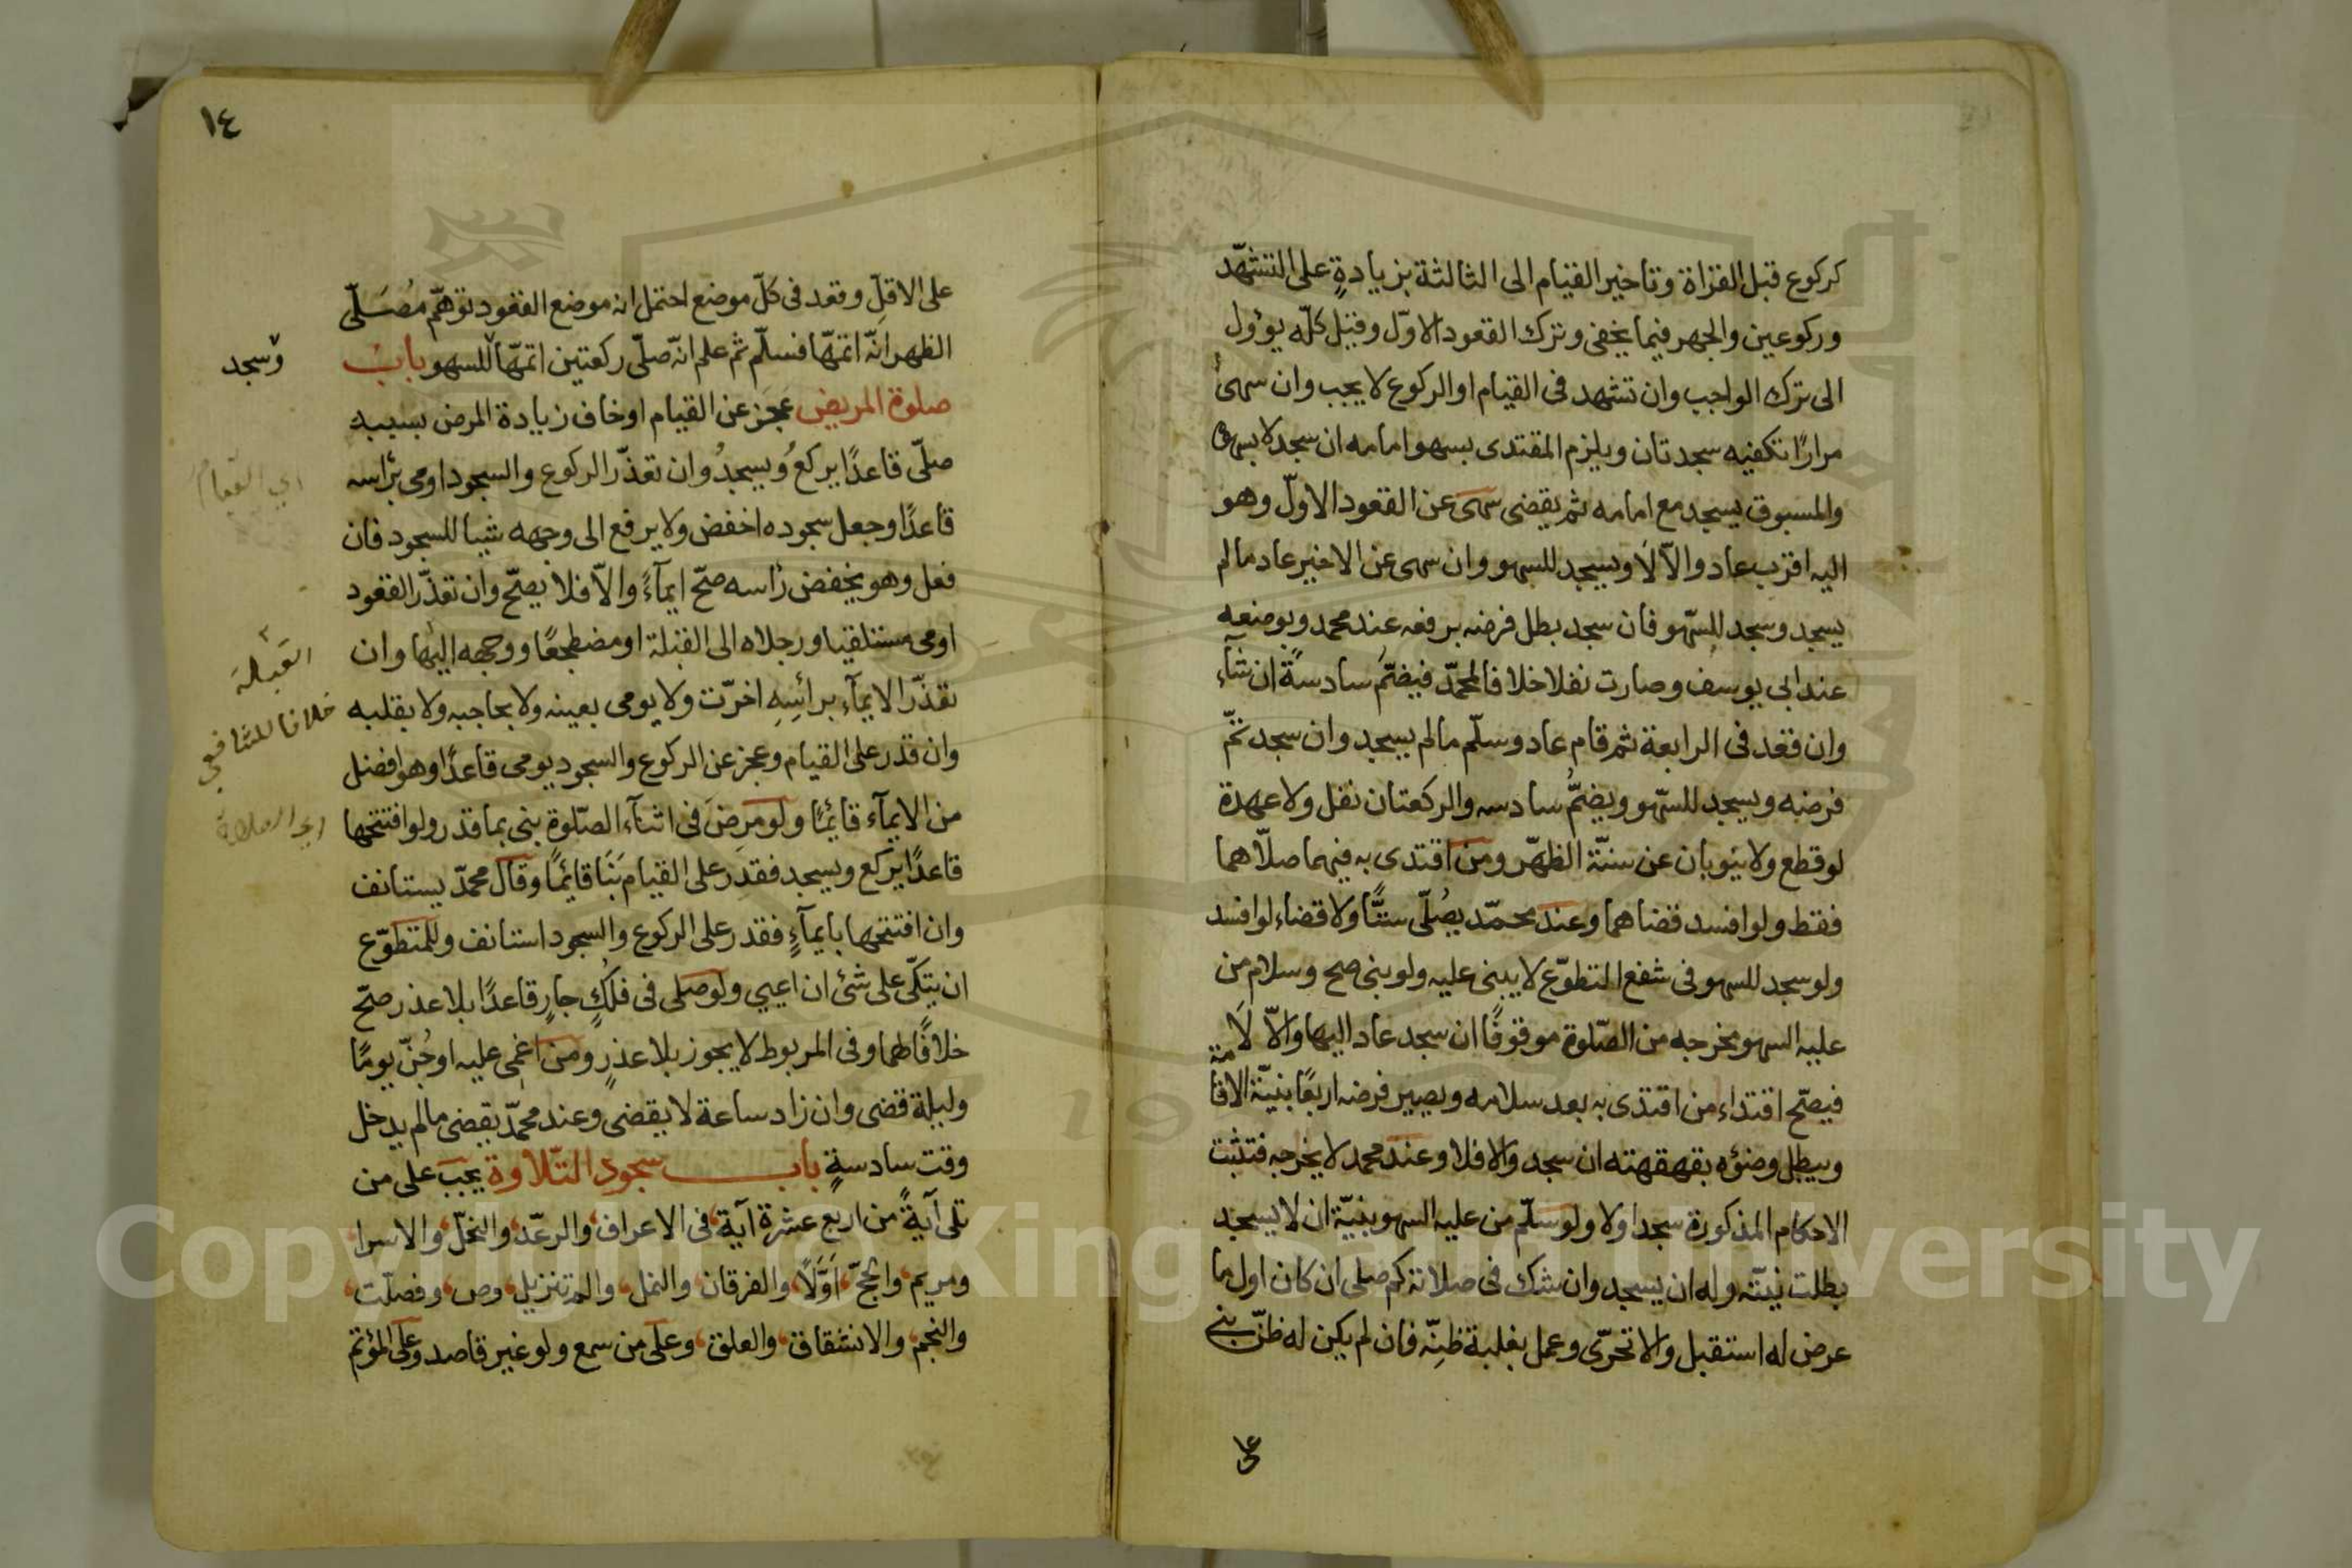 كركوع قبل القراة وتاخير القيام الى الثالثة بزيادةٍ على التشهّد
وركوعين والجهر فيما يخفى وترك القعود الاوّل وقيل كلّه يوؤل
الى ترك الواجب وان تشهد فى القيام او الركوع لا يجب وان سهىٰ
مرارًا تكفيه سجدتان ويلزم المقتدى بسهو امامه ان سجد لا بسهوه
والمسبوق يسجد مع امامه ثم يقضى سهى عن القعود الاوّل وهو
اليه اقرب عاد والّا لَا ويسجد للسهو وان سهى عن الاخير عاد مالم
يسجد وسجد للسّهو فان سجد بطل فرضه برفعه عند محمد وبوضعه
عند ابى يوسف وصارت نفلا خلافا لمحمّد فيضمّ سادسةً ان شآء
وان قعد فى الرابعة ثم قام عاد وسلّم مالم يسجد وان سجد تمّ
فرضه ويسجد للسّهو ويضمُّ سادسه والركعتان نفل ولا عهدة
لو قطع ولا ينوبان عن سنّة الظهر ومن اقتدى به فيهما صلّاهما
فقط ولو افسد قضاهما وعند محمّد يصُلّى ستًّا ولا قضاء لو افسد
ولو سجد للسهو فى شفع التطوّع لا يبنى عليه ولو بنى صح وسلام من
عليه السهو يخرجه من الصّلوة موقوفًا ان سجد عاد اليها والّا لَا
فيصّح اقتداء من اقتدى به بعد سلامه ويصير فرضه اربعًا بنيّة الاقامة
ويبطل وضؤه بقهقهته ان سجد والا فلا وعند محمد لا يخرجه فتثبت
الاحكام المذكورة سجد اولا ولو سلّم من عليه السهو بنيّة ان لا يسجد
بطلت نيّته وله ان يسجد وان شك فى صلاته كم صلى ان كان اول ما
عرض له استقبل والا تحرّى وعمل بغلبة ظنّه فان لم يكن له ظنّ بنى
على
١٤
على الاقلّ وقعد فى كلّ موضع احتمل انه موضع القعود توهّم مُصَلّى
الظهر انّه اتمّها فسلّم ثم علم انّه صلّى ركعتين اتمّها للسهو بابُ
وسجد
صلوة المريض عَجَز عن القيام او خاف زيادة المرض بسببه
صلّى قاعدًا يركعُ ويسجدُ وان تعذّر الركوع والسجود اومى برٔاسه
قاعدًا وجعل سجوده اخفض ولا يرفع الى وجهه شيا للسجود فان
فعل وهو يخفض رٔاسه صحّ ايمآءً والّا فلا يصحّ وان تعذّر القعود
اومى مستلقيا ورجلاه الى القبلة او مضطجعًا ووجهه اليها وان
القبلة
تعذّر الايمآء برائسِهِ اخرّت ولا يومى بعينه ولا بحاجبه ولا بقلبه
خلافا للشافعي
وان قدر على القيام وعجز عن الركوع والسجود يومى قاعدًا وهو افضل
من الايمآء قائمًا ولو مرِضَ فى اثنآء الصّلوة بنى بما قدر ولو افتتحها
اي الصلاة
قاعدًا يركع ويسجد فقدر على القيام بَنَا قائمًا وقال محمدّ يستانف
وان افتتحها بايمآءٍ فقدر على الركوع والسجود استانف وللمتطوّع
ان يتكّى على شئ ان اعيي ولو صلى فى فلكٍ جارٍ قاعدًا بلا عذر صحّ
خلافًا لهما وفى المربوط لا يجوز بلا عذرٍ ومن اغمى عليه او جُنّ يومًا
وليلة قضى وان زاد ساعة لا يقضى وعند محمدّ يقضى مالم يدخل
وقت سادسةٍ باب سجود التّلاوة يجب على من
تلى آيةً من اربع عشرة آية فى الاعراف والرعّد والنحّل والاسرا
ومريم والحجّ اوّلًا والفرقان والنمل والم تنزيل وص وفصلّت
والنجم والانشقاق والعلق وعلى من سمع ولو غير قاصد وعلى المؤتم